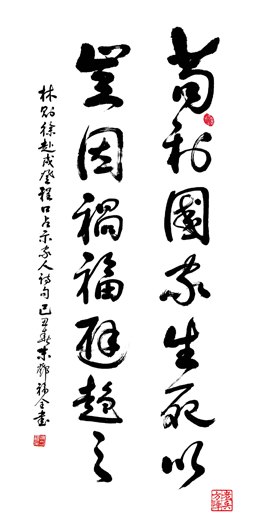 苟利國家生死以
豈因禍福避趨之
林則徐赴戍登程口占示家人詩句己丑書